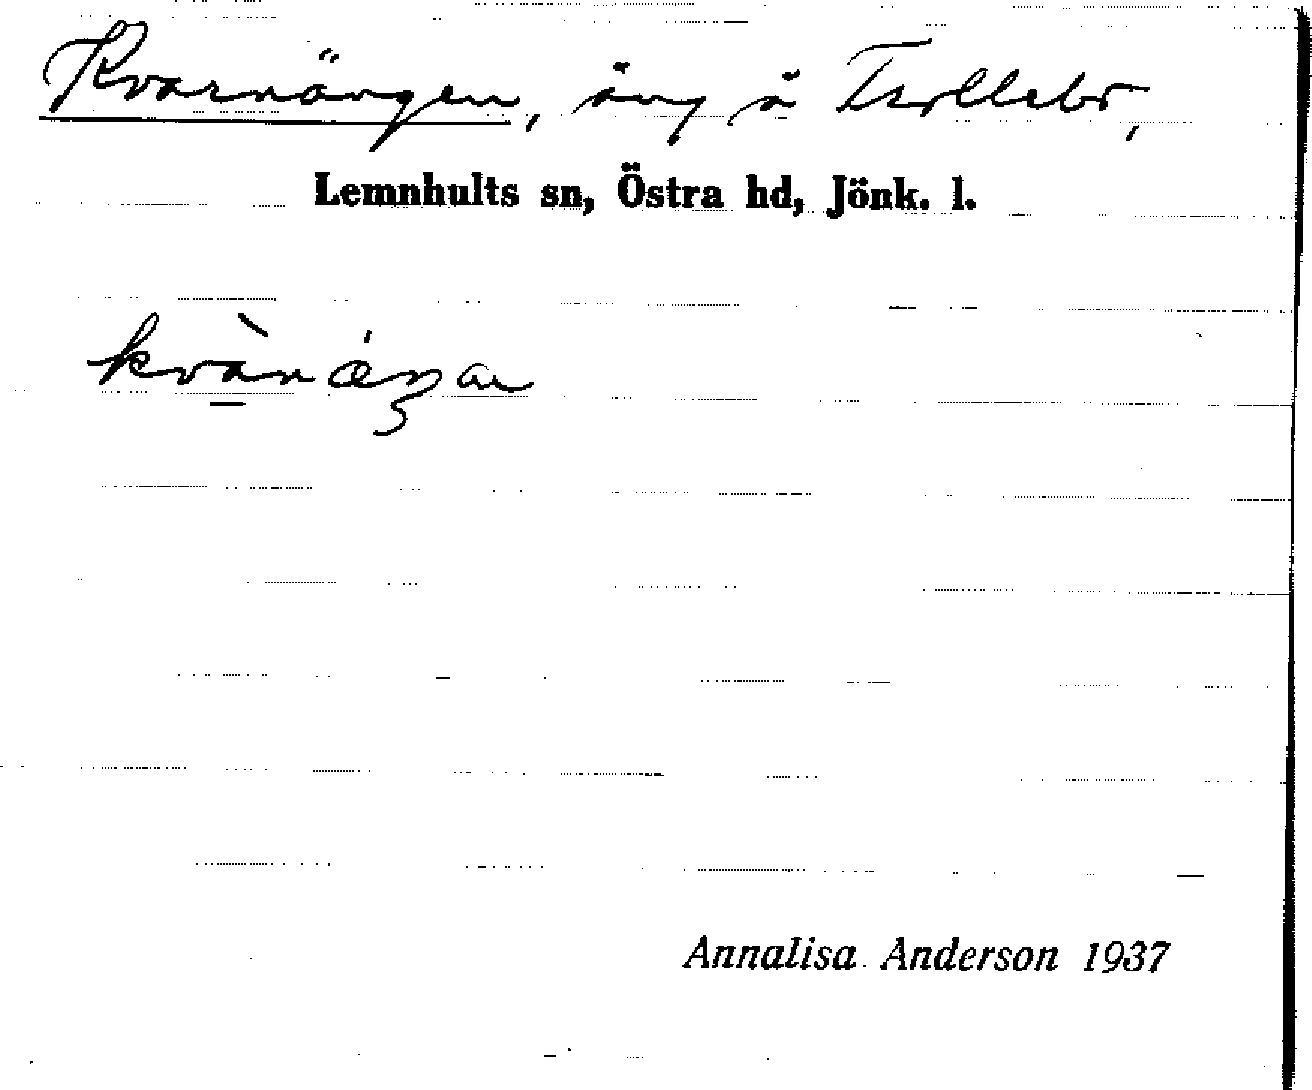 Kvarnängen, äng å Trollebo,
Lemnhults sn, Östra hd, Jönk. l.
Annalisa Anderson 1937